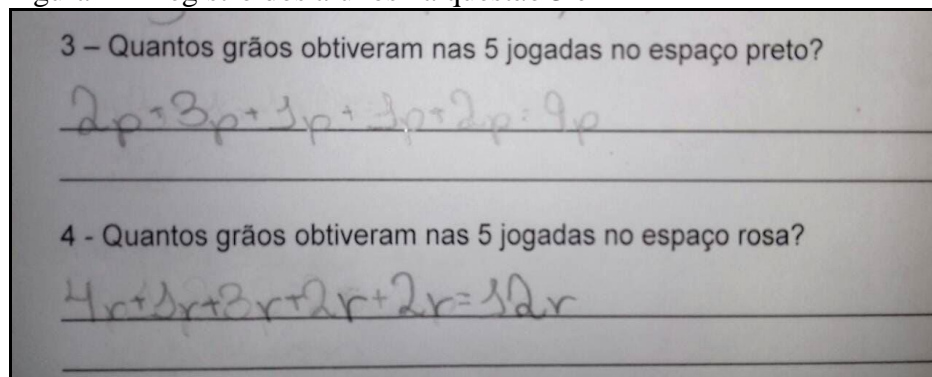 3 – Quantos grãos obtiveram nas 5 jogadas no espaço preto?
2p+3p+1p+1p+2p=9p
4 - Quantos grãos obtiveram nas 5 jogadas no espaço rosa?
4r+1r+3r+2r+2r=12r